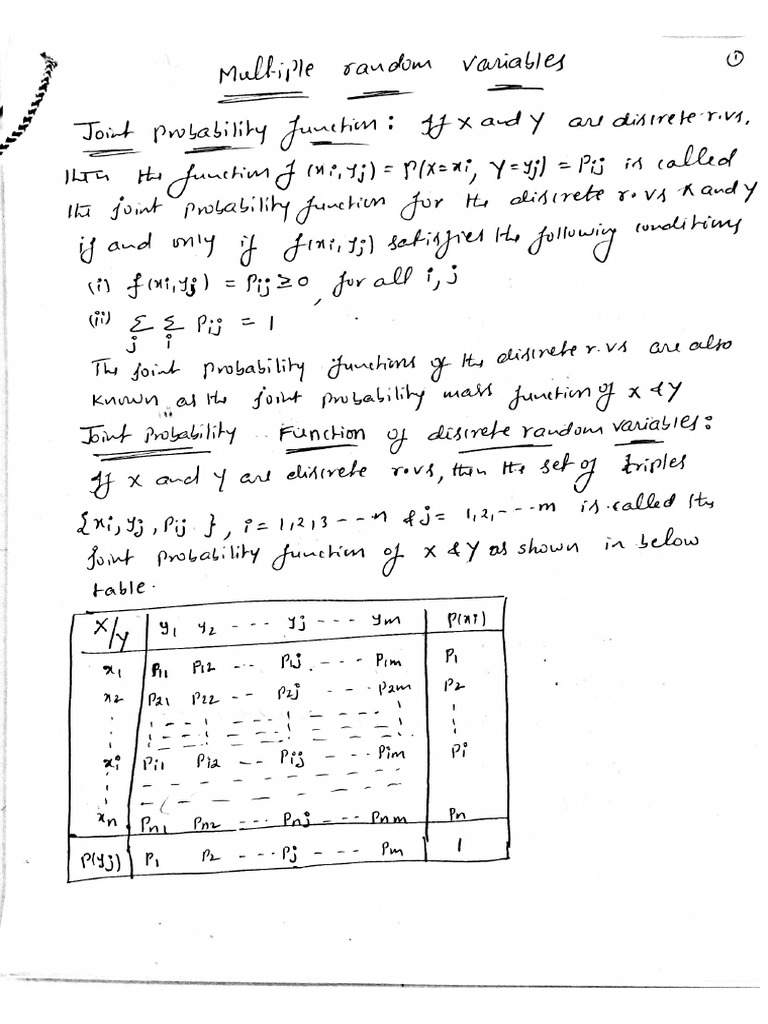 Multiple random variables
①
Joint probability function: If X and Y are discrete r.vs,
then the function f(xi, yj) = P(X=xi, Y=yj) = Pij is called
the joint probability function for the discrete r.vs X and Y
if and only if f(xi, yj) satisfies the following conditions
(i) f(xi, yj) = Pij ≥ 0, for all i, j
(ii) Σj Σi Pij = 1
The joint probability functions of the discrete r.vs are also
known as the joint probability mass function of X & Y
Joint Probability Function of discrete random variables:
If X and Y are discrete r.vs, then the set of triples
{xi, yj, Pij}, i = 1,2,3 --- n & j = 1,2, --- m is called the
joint probability function of X & Y as shown in below
table.
X/Y y1 y2 --- yj --- ym P(xi)
x1 P11 P12 -- P1j --- P1m P1
x2 P21 P22 -- P2j --- P2m P2
xi Pi1 Pi2 -- Pij --- Pim Pi
xn Pn1 Pn2 --- Pnj --- Pnm Pn
P(yj) P1 P2 --- Pj --- Pm 1